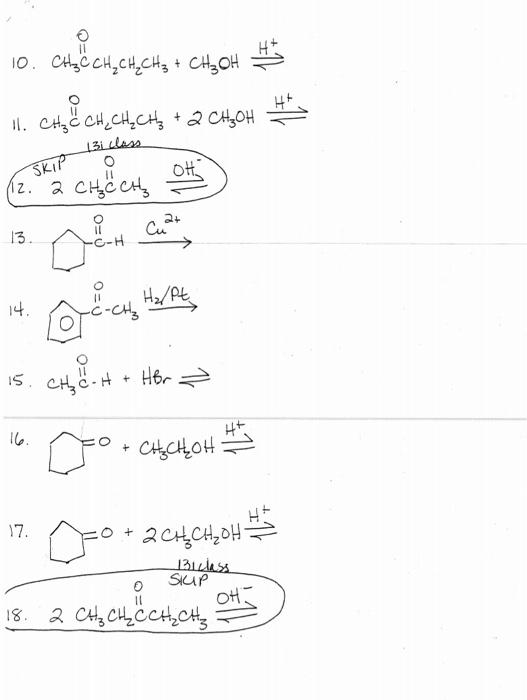 10. CH₃CCH₂CH₂CH₃ + CH₃OH ⇌ H⁺
O
11. CH₃CCH₂CH₂CH₃ + 2 CH₃OH ⇌ H⁺
O
131 class
SKIP
12. 2 CH₃CCH₃ ⇌ OH⁻
O
13. C-H → Cu²⁺
O
14. C-CH₃ → H₂/Pt
O
15. CH₃C-H + HBr ⇌
O
16. =O + CH₃CH₂OH ⇌ H⁺
17. =O + 2 CH₃CH₂OH ⇌ H⁺
131 class
SKIP
18. 2 CH₃CH₂CCH₂CH₃ ⇌ OH⁻
O